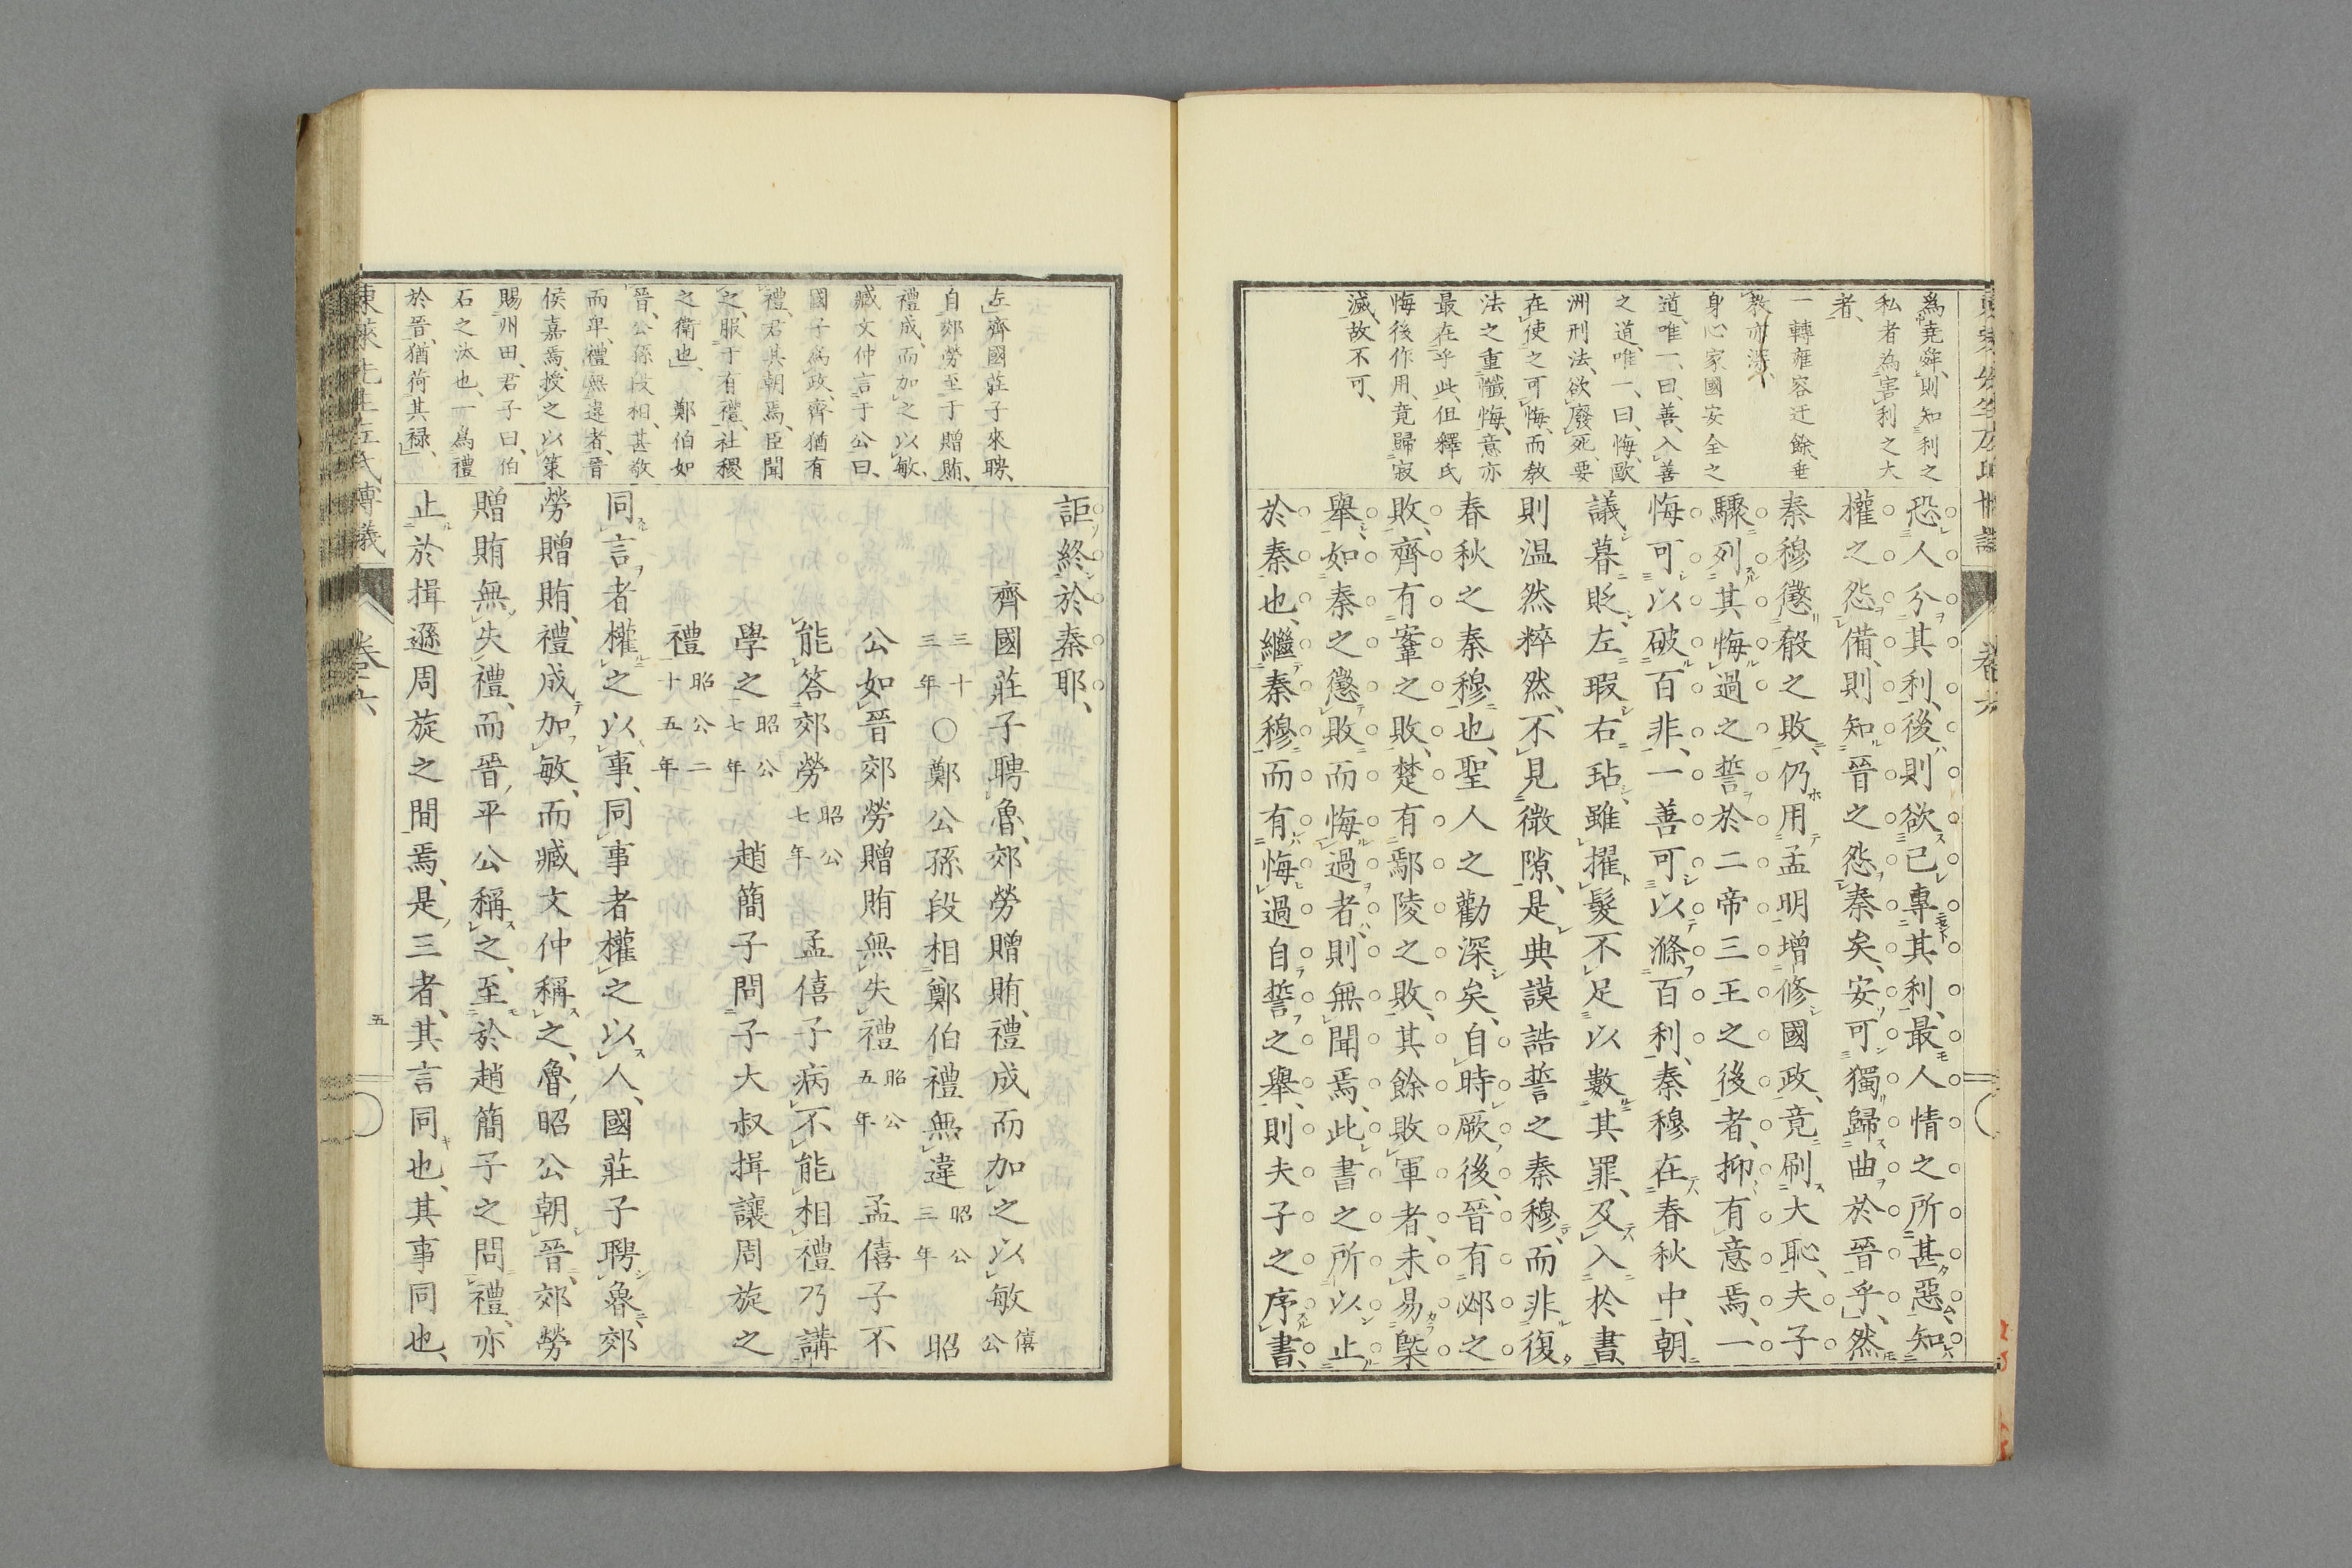 為堯舜、則知利之
私者為害利之大
者、
一轉雍容迂餘、垂
教亦深、
身心家國安全之
道、唯一、曰、善、入善
之道、唯一、曰、悔、歐
洲刑法、欲廢死、要
在使之可悔、而教
法之重懺悔、意亦
最在乎此、但釋氏
悔後作用、竟歸寂
滅、故不可、
恐人分其利、後則欲己專其利、最人情之所甚惡、知
權之怨備、則知晉之怨秦矣、安可獨歸曲於晉乎、然
秦穆懲殽之敗、仍用孟明增修國政、竟刷大恥、夫子
驟列其悔過之誓於二帝三王之後者、抑有意焉、一
悔可以破百非、一善可以滌百利、秦穆在春秋中、朝
議暮貶、左瑕右玷、雖擢髮不足以數其罪、及入於書、
則温然粹然、不見微隙、是典謨誥誓之秦穆、而非復
春秋之秦穆也、聖人之勸深矣、自時厥後、晉有邲之
敗、齊有鞌之敗、楚有鄢陵之敗、其餘敗軍者、未易槩
舉、如秦之懲敗而悔過者、則無聞焉、此書之所以止
於秦也、繼秦穆而有悔過自誓之舉、則夫子之序書、
左、齊國莊子來聘、
自郊勞至于贈賄、
禮成、而加之以敏、
臧文仲言于公曰、
國子為政、齊猶有
禮、君其朝焉、臣聞
之、服于有禮、社稷
之衛也、 鄭伯如
晉、公孫段相、甚敬
而卑、禮無違者、晉
侯嘉焉、授之以策
賜州田、君子曰、伯
石之汰也、一為禮
於晉、猶荷其祿、
詎終於秦耶、
齊國莊子聘魯、郊勞贈賄、禮成而加之以敏 僖公
三十三年 ○鄭公孫段相鄭伯禮無違 昭公三年 昭
公如晉郊勞贈賄無失禮 昭公五年 孟僖子不
能答郊勞 昭公七年 孟僖子病不能相禮乃講
學之 昭公七年 趙簡子問子大叔揖讓周旋之
禮 昭公二十五年
同言者權之以事、同事者權之以人、國莊子聘魯、郊
勞贈賄、禮成加敏、而臧文仲稱之、魯昭公朝晉、郊勞
贈賄無失禮、而晉平公稱之、至於趙簡子之問禮、亦
止於揖遜周旋之間焉、是三者、其言同也、其事同也、
東萊先生左氏博議
卷六
五